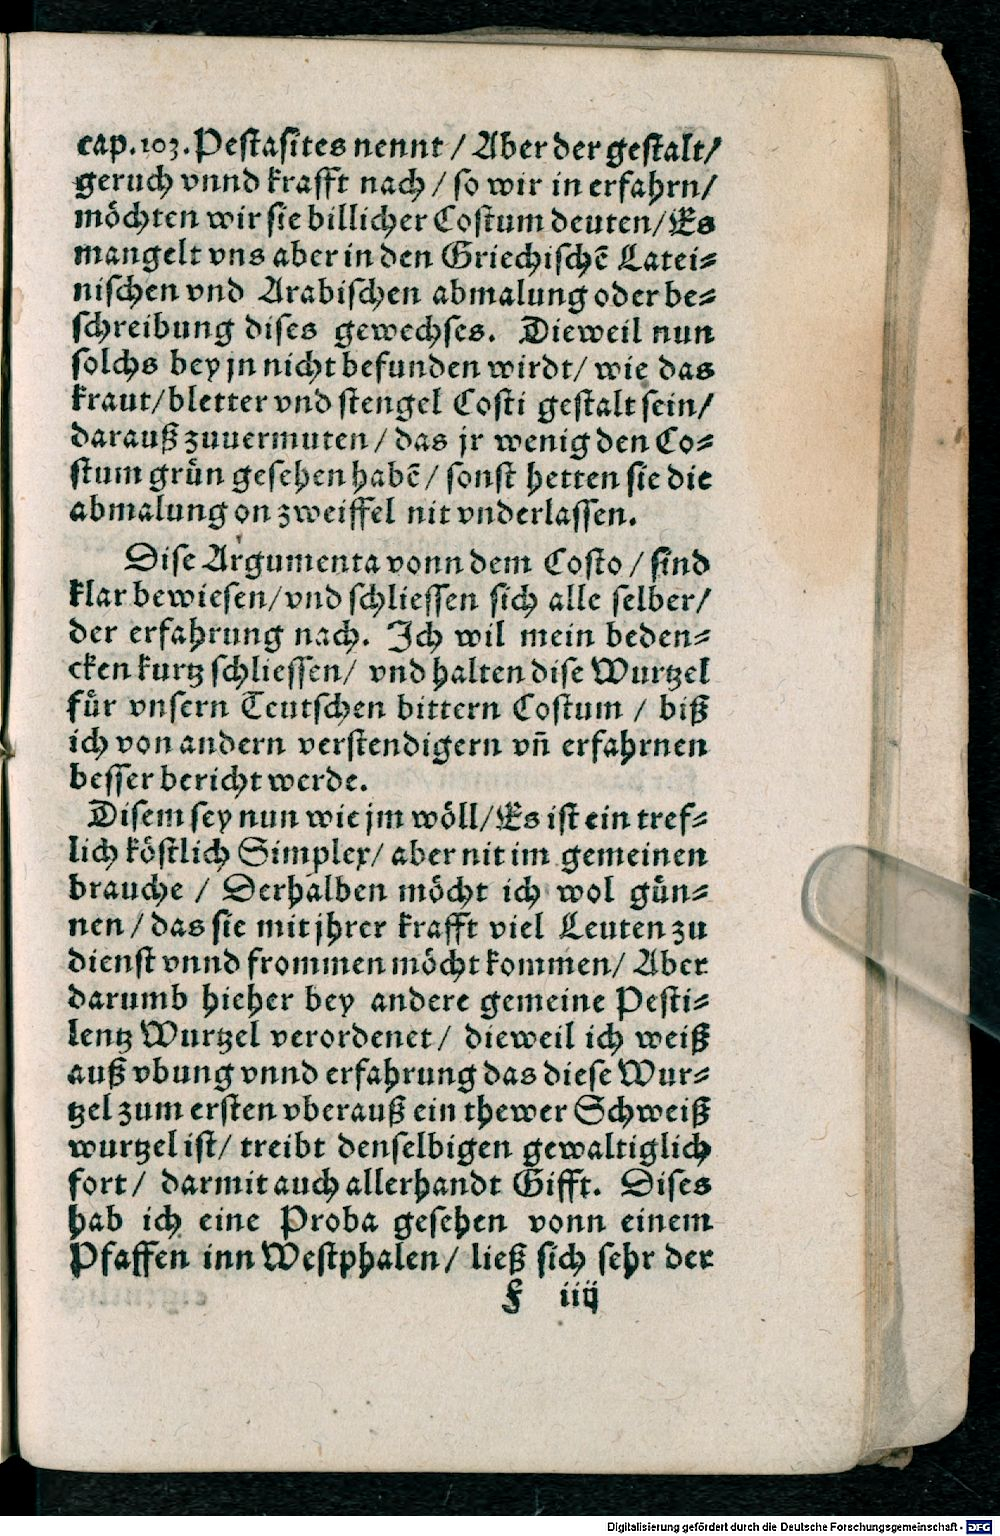 cap.103. Pestasites nennt / Aber der gestalt/
geruch vnnd krafft nach / so wir in erfahrn/
möchten wir sie billicher Costum deuten/ Es
mangelt vns aber in den Griechischē Latei=
nischen vnd Arabischen abmalung oder be=
schreibung dises gewechses. Dieweil nun
solchs bey jn nicht befunden wirdt/ wie das
kraut/ bletter vnd stengel Costi gestalt sein/
darauß zuuermuten / das jr wenig den Co=
stum grün gesehen habē / sonst hetten sie die
abmalung on zweiffel nit vnderlassen.
Dise Argumenta vonn dem Costo / sind
klar bewiesen/ vnd schliessen sich alle selber/
der erfahrung nach. Ich wil mein beden=
cken kurtz schliessen/ vnd halten dise Wurtzel
für vnsern Teutschen bittern Costum / biß
ich von andern verstendigern vñ erfahrnen
besser bericht werde.
Disem sey nun wie jm wöll/ Es ist ein tref=
lich köstlich Simplex/ aber nit im gemeinen
brauche / Derhalben möcht ich wol gün=
nen / das sie mit jhrer krafft viel Leuten zu
dienst vnnd frommen möcht kommen/ Aber
darumb hieher bey andere gemeine Pesti=
lentz Wurtzel verordenet / dieweil ich weiß
auß vbung vnnd erfahrung das diese Wur=
tzel zum ersten vberauß ein thewer Schweiß
wurtzel ist/ treibt denselbigen gewaltiglich
fort / darmit auch allerhandt Gifft. Dises
hab ich eine Proba gesehen vonn einem
Pfaffen inn Westphalen / ließ sich sehr der
F iiij
Digitalisierung gefördert durch die Deutsche Forschungsgemeinschaft - DFG